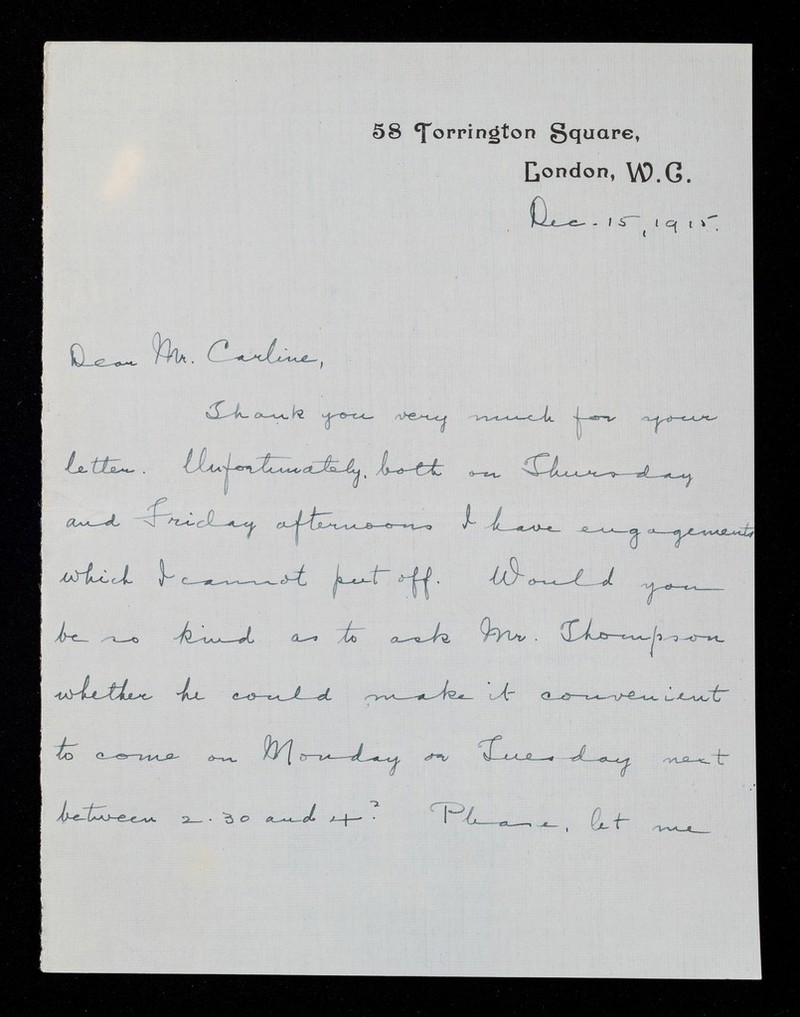 58 Torrington Square,
London, W.C.
Dec. 15, 1915.
Dear Mr. Carline,
Thank you very much for your
letter. Unfortunately, both on Thursday
and Friday afternoons I have engagements
which I cannot put off. Would you
be so kind as to ask Mr. Thompson
whether he could make it convenient
to come on Monday or Tuesday next
between 2.30 and 4? Please, let me